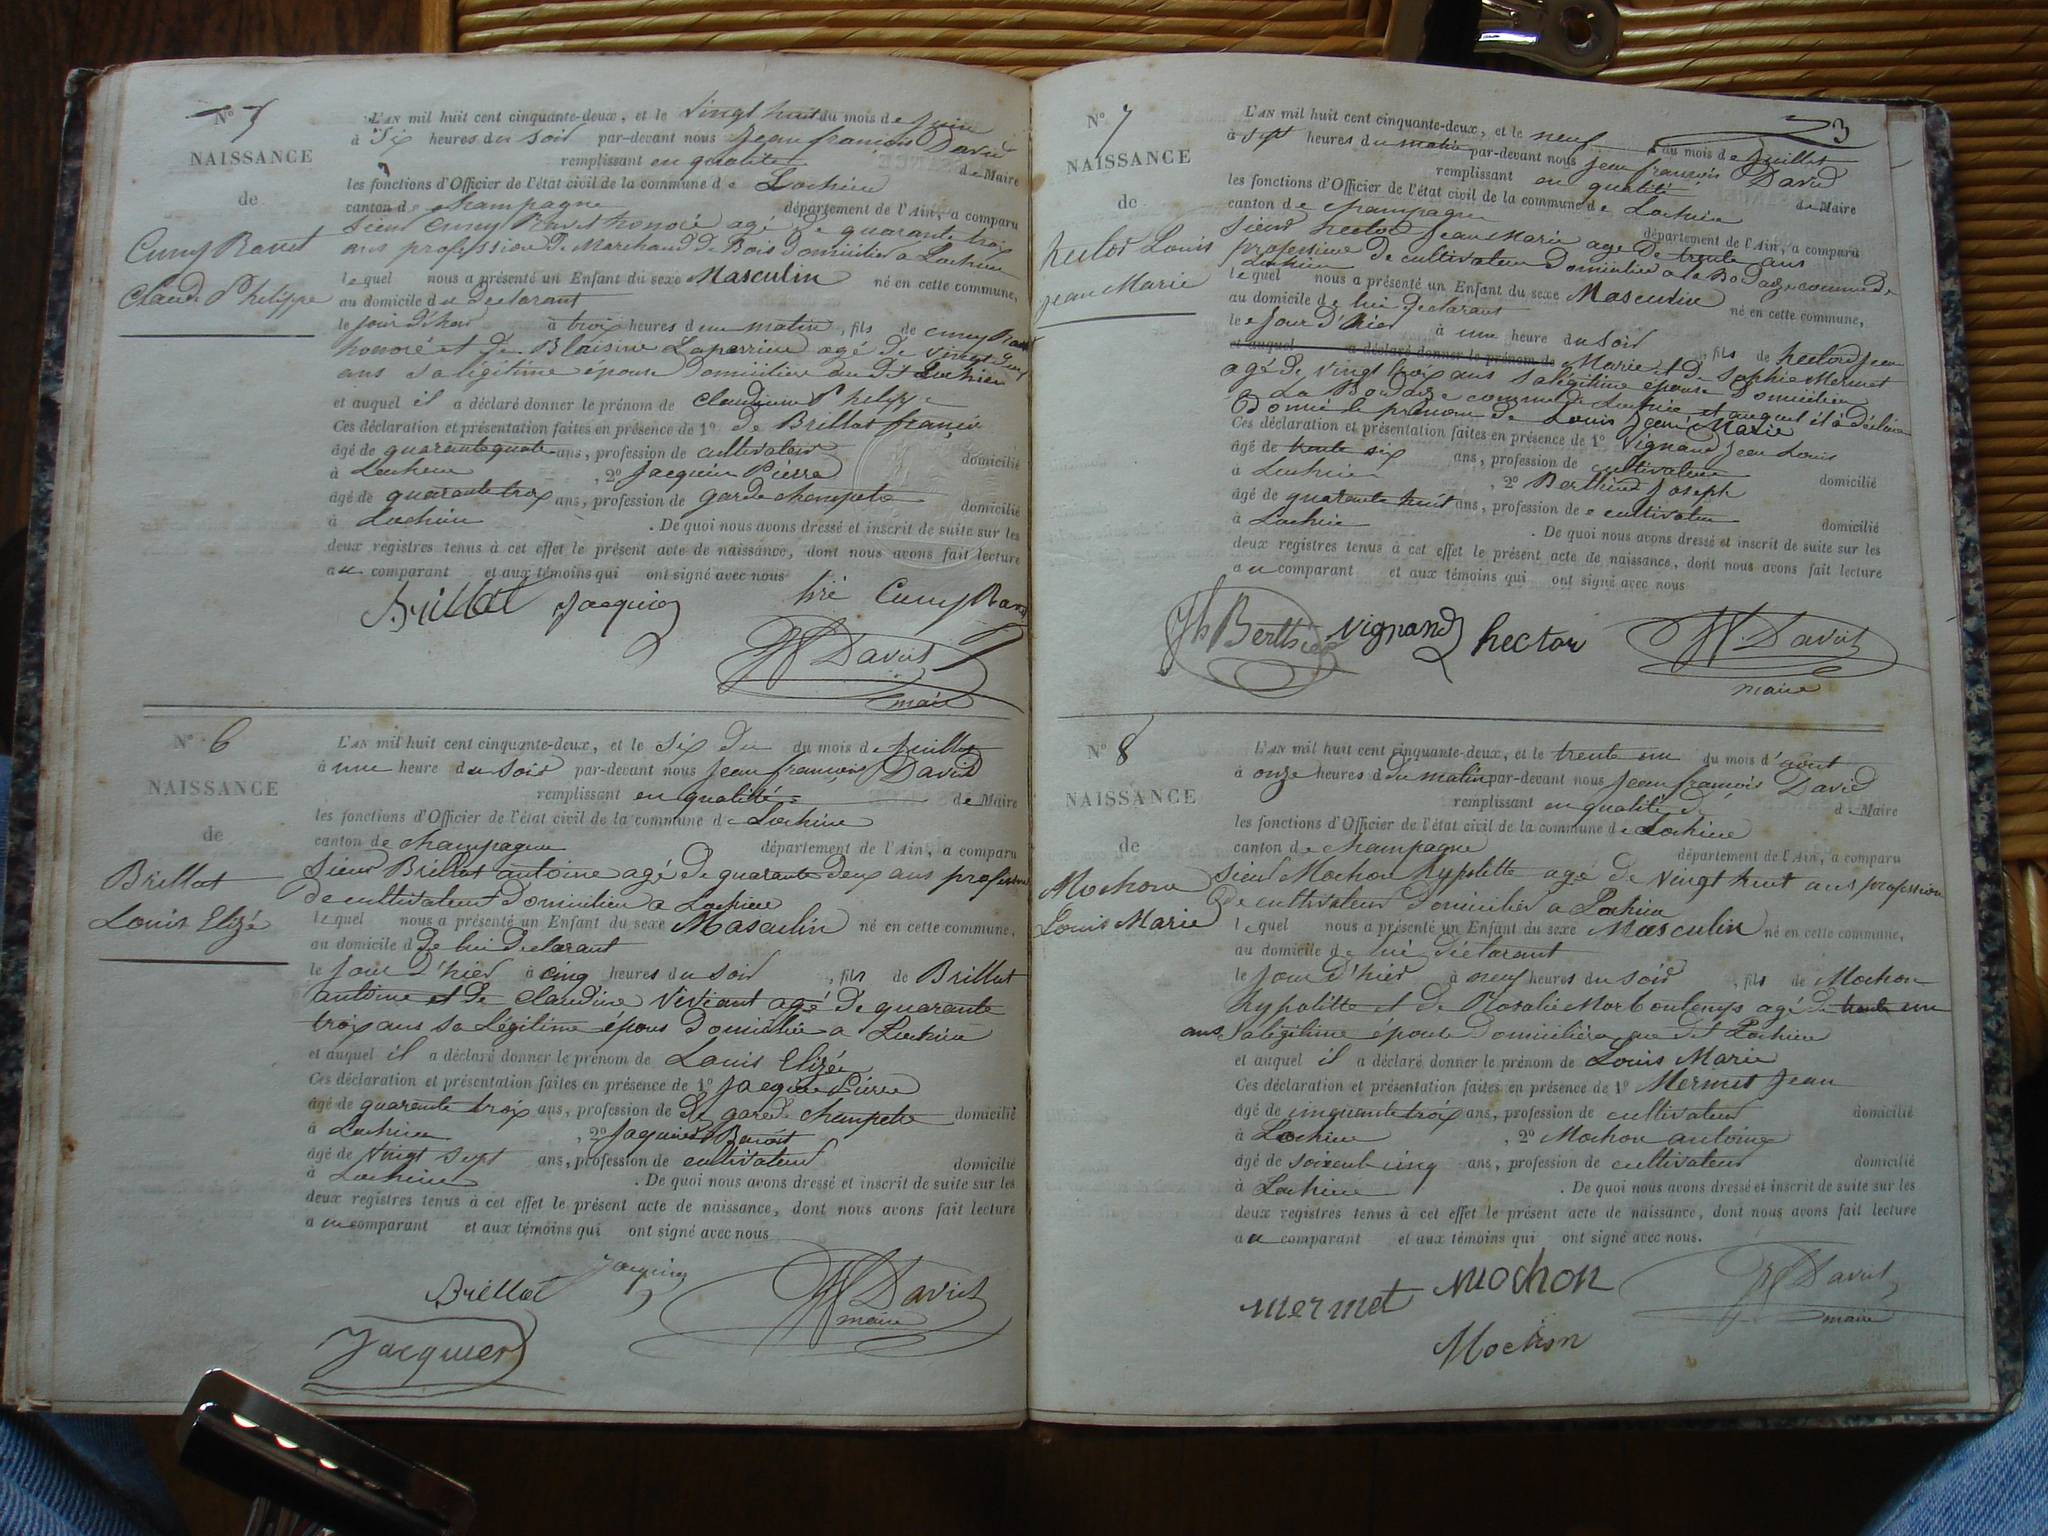 N° 5
NAISSANCE
de
Cuny Ravet
Claude Philippe
L'AN mil huit cent cinquante-deux, et le vingt huit du mois de juin
à six heures du soir par-devant nous Jean françois David
remplissant en qualité de Maire
les fonctions d'Officier de l'état civil de la commune de Lochieu
canton de champagne département de l'Ain, a comparu
sieur Cuny Ravet honoré agé de quarante trois
ans profession de Marchand de Bois domicilier a Lochieu
lequel nous a présenté un Enfant du sexe Masculin né en cette commune,
au domicile du declarant
le jour d'hier à trois heures du matin, fils de cuny Ravet
honoré et de Blaisine Laperrine agé de vingt
ans sa légitime épouse domicilière au dit Lochieu
et auquel il a déclaré donner le prénom de Philippe
Ces déclaration et présentation faites en présence de 1° de Brillat
âgé de quarante quatre ans, profession de cultivateur domicilié
à Lochieu , 2° Jacquin Pierre
âgé de quarante trois ans, profession de garde champete domicilié
à Lochieu . De quoi nous avons dressé et inscrit de suite sur les
deux registres tenus à cet effet le présent acte de naissance, dont nous avons fait lecture
au comparant et aux témoins qui ont signé avec nous
Brillat Jacquin Cuny Rav
David
maire
N° 6
NAISSANCE
de
Brillat
Louis Elizé
L'AN mil huit cent cinquante-deux, et le six du du mois de juillet
à une heure du soir par-devant nous Jean françois David
remplissant en qualité de Maire
les fonctions d'Officier de l'état civil de la commune de Lochieu
canton de champagne département de l'Ain, a comparu
Sieur Brillat antoine agé de quarante deux ans profession
de cultivateur domicilier a Lochieu
lequel nous a présenté un Enfant du sexe Masculin né en cette commune,
au domicile d de lui declarant
le jour d'hier à cinq heures du soir , fils de Brillat
antoine et de claudine Viviant agé de quarante
trois ans sa Légitime épous domicilière a Lochieu
et auquel il a déclaré donner le prénom de Louis Elizée
Ces déclaration et présentation faites en présence de 1° Jacquin Pierre
âgé de quarente trois ans, profession de de garde champette domicilié
à Lochieu , 2° Jaquier Benoit
âgé de vingt sept ans, profession de cultivateur domicilié
à Lochieu . De quoi nous avons dressé et inscrit de suite sur les
deux registres tenus à cet effet le présent acte de naissance, dont nous avons fait lecture
au comparant et aux témoins qui ont signé avec nous
Brillat Jacquin David
maire
Jacquier
3
N° 7
NAISSANCE
de
hector Louis
jean Marie
L'AN mil huit cent cinquante-deux, et le neuf du mois de juillet
à sept heures du matin par-devant nous jean françois David
remplissant en qualité de Maire
les fonctions d'Officier de l'état civil de la commune de Lochieu
canton de champagne département de l'Ain, a comparu
sieur hector Jean Marie agé de trente ans
profession de cultivateur domicilier a la commune de
Lochieu
lequel nous a présenté un Enfant du sexe Masculin né en cette commune,
au domicile de lui declarant
le jour d'hier à une heure du soir , fils de hector Jean
et auquel a déclaré donner le prénom de Marie et de Sophie Mermet
agé de vingt trois ans sa légitime épouse domicilier
a La commune de Lochieu et auquel il a déclaré
donné le prénom de Louis Jean Marie
Ces déclaration et présentation faites en présence de 1° Vignand Jean Louis
âgé de trente six ans, profession de cultivateur domicilié
à Lochieu , 2° Berthier Joseph
âgé de quarante huit ans, profession de cultivateur domicilié
à Lochieu . De quoi nous avons dressé et inscrit de suite sur les
deux registres tenus à cet effet le présent acte de naissance, dont nous avons fait lecture
au comparant et aux témoins qui ont signé avec nous
Jh Berthier vignand hector David
maire
N° 8
NAISSANCE
de
Mochon
Louis Marie
L'AN mil huit cent cinquante-deux, et le trente un du mois d'aout
à onze heures du matin par-devant nous jean françois David
remplissant en qualité d de Maire
les fonctions d'Officier de l'état civil de la commune de Lochieu
canton de champagne département de l'Ain, a comparu
sieur Mochon hypolitte agé de vingt huit ans profession
de cultivateur domicilier a Lochieu
lequel nous a présenté un Enfant du sexe Masculin né en cette commune,
au domicile de lui déclarant
le jour d'hier à neuf heures du soir , fils de Mochon
hypolitte et de Rosalie Marboutemps agé de trente un
ans sa légitime epouse domicilière au dit Lochieu
et auquel il a déclaré donner le prénom de Louis Marie
Ces déclaration et présentation faites en présence de 1° Mermet Jean
âgé de cinquante trois ans, profession de cultivateur domicilié
à Lochieu , 2° Mochon antoine
âgé de soixent cinq ans, profession de cultivateur domicilié
à Lochieu . De quoi nous avons dressé et inscrit de suite sur les
deux registres tenus à cet effet le présent acte de naissance, dont nous avons fait lecture
au comparant et aux témoins qui ont signé avec nous.
mermet mochon David
maire
Mochon